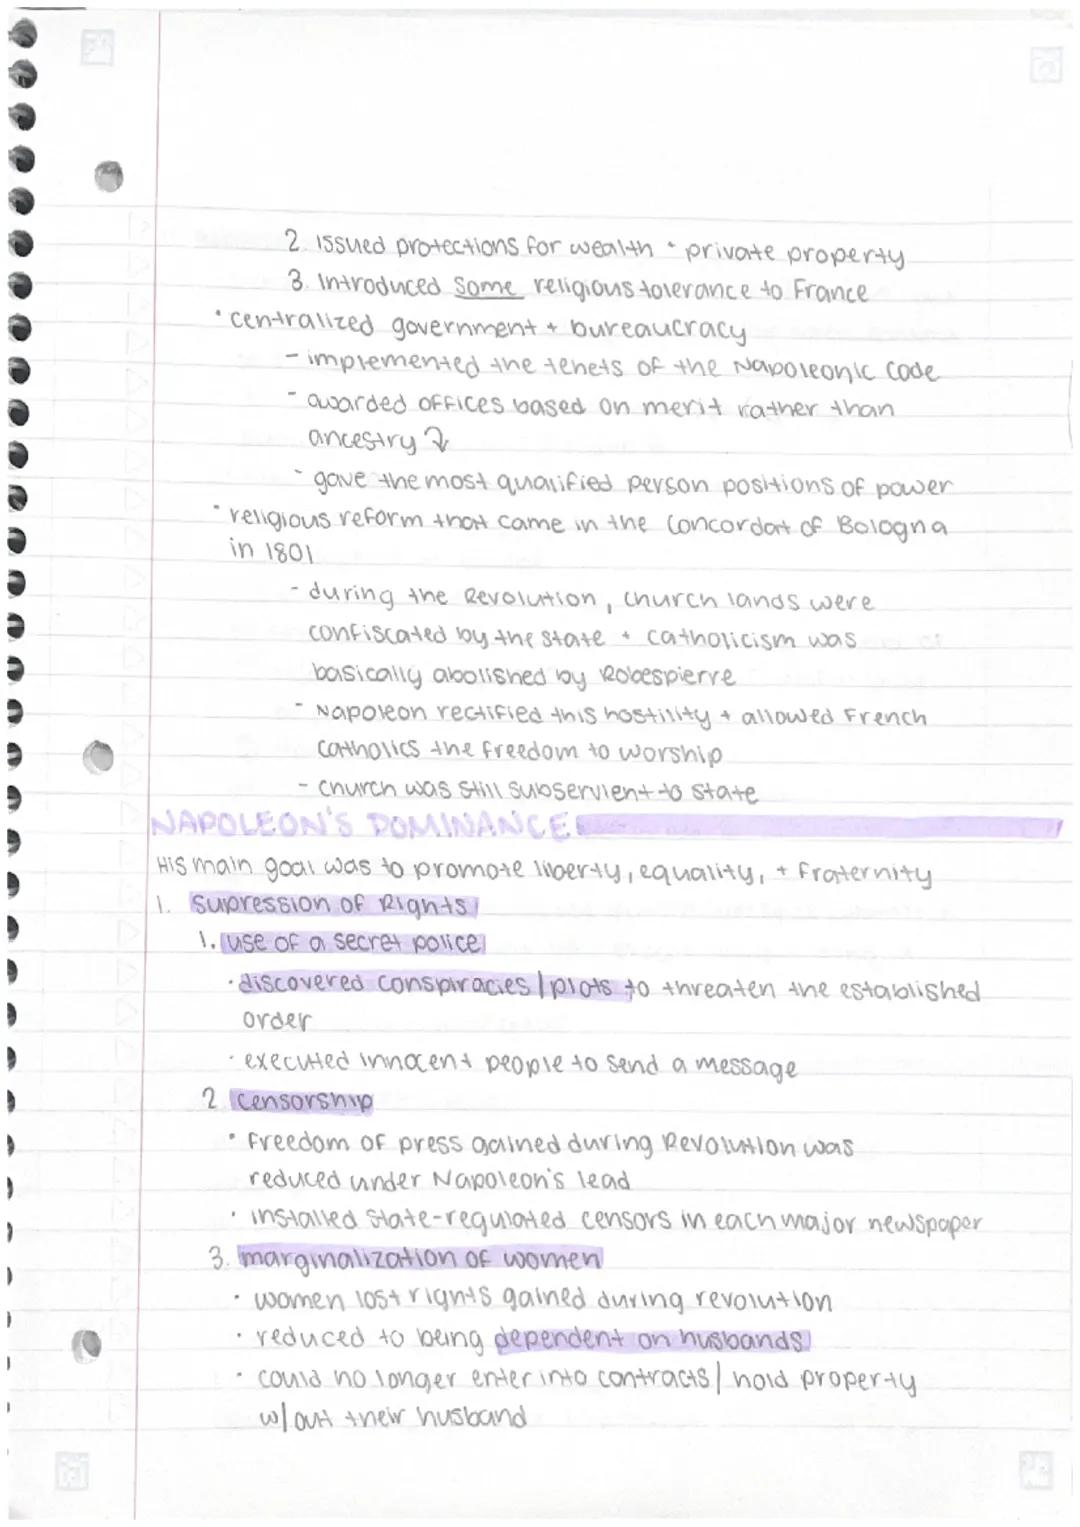 2. Issued protections for wealth + private property
3. Introduced some religious tolerance to France
• centralized government + bureaucracy
- implemented the tenets of the Napoleonic Code
- awarded offices based on merit rather than
ancestry
- gave the most qualified person positions of power
• religious reform that came in the Concordat of Bologna
in 1801
- during the Revolution, church lands were
confiscated by the state + catholicism was
basically abolished by Robespierre
- Napoleon rectified this hostility + allowed French
Catholics the freedom to worship
- church was still subservient to state
NAPOLEON'S DOMINANCE
His main goal was to promote liberty, equality, + fraternity
1. Supression of Rights
1. use of a secret police
• discovered conspiracies/plots to threaten the established
order
• executed innocent people to send a message
2. censorship
• freedom of press gained during Revolution was
reduced under Napoleon's lead
• installed state-regulated censors in each major newspaper
3. marginalization of women
• women lost rights gained during revolution
• reduced to being dependent on husbands
• could no longer enter into contracts/hold property
w/out their husband